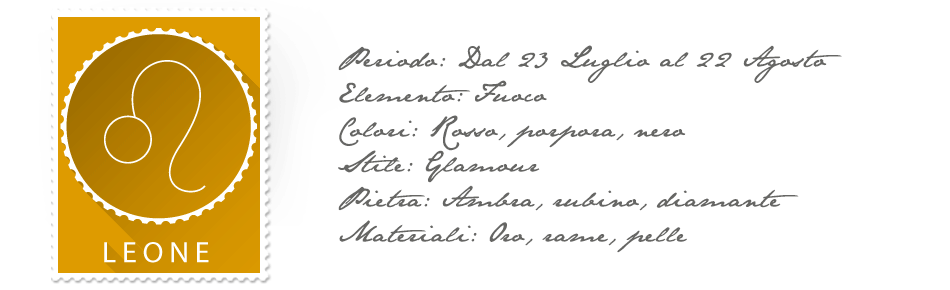 LEONE
Periodo: Dal 23 Luglio al 22 Agosto
Elemento: Fuoco
Colori: Rosso, porpora, nero
Stile: Glamour
Pietra: Ambra, rubino, diamante
Materiali: Oro, rame, pelle